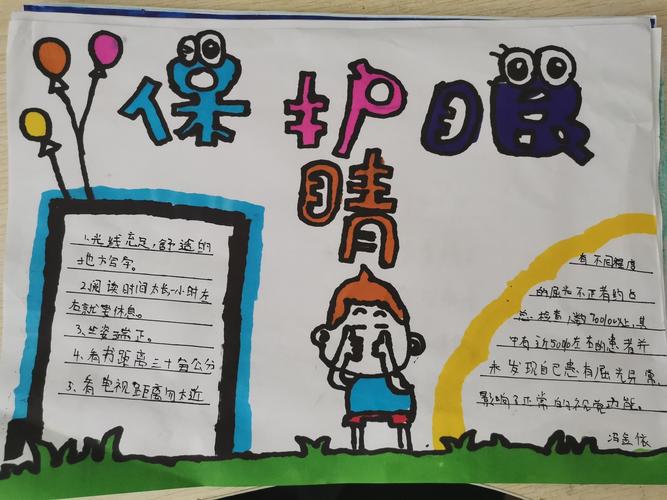 保护眼
睛
1.光线充足,舒适的
地方写字。
2.阅读时间太长一小时左
右就要休息。
3.坐姿端正。
4.看书距离三十公分
5.看电视距离勿太近
有不同程度
的屈光不正者约占
总检查人数70%以上,其
中有近50%左右的患者并
未发现自己患有屈光异常
影响了正常的视觉功能。
冯金依